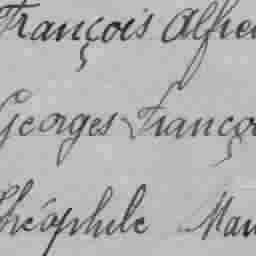 François Alfre
Georges Franço
Théophile Mau